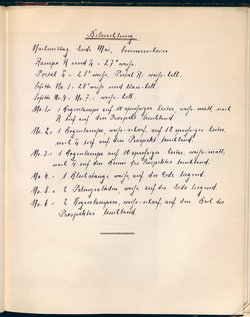 Beleuchtung.
Nachmittag Ende Mai, Sonnenschein.
Rampe R und 4 - 27° weiss.
Portal 4. - 25° weiss, Portal R. weiss-hell.
Soffitte No. 1 - 28° weiss und blau-hell.
Soffitte No. 4 - No. 7. - weiss-hell.
No. 1.: 1 Bogenlampe auf 10 sprossiger Leiter, weiss-matt, nach
R tief auf den Prospekt leuchtend.
No. 2.: 1 Bogenlampe weiss-scharf, auf 12 sprossiger Leiter,
nach 4 auf den Prospekt leuchtend.
No. 3.: 1 Bogenlampe auf 10 sprossiger Leiter, weiss-matt,
nach 4 auf den Baum des Prospekts leuchtend.
No. 4.: 1 weiss, auf der Erde liegend.
No. 5.: 2 weiss auf der Erde liegend.
No. 6.: 2 Bogenlampen, weiss-scharf, auf den des
Prospektes leuchtend.